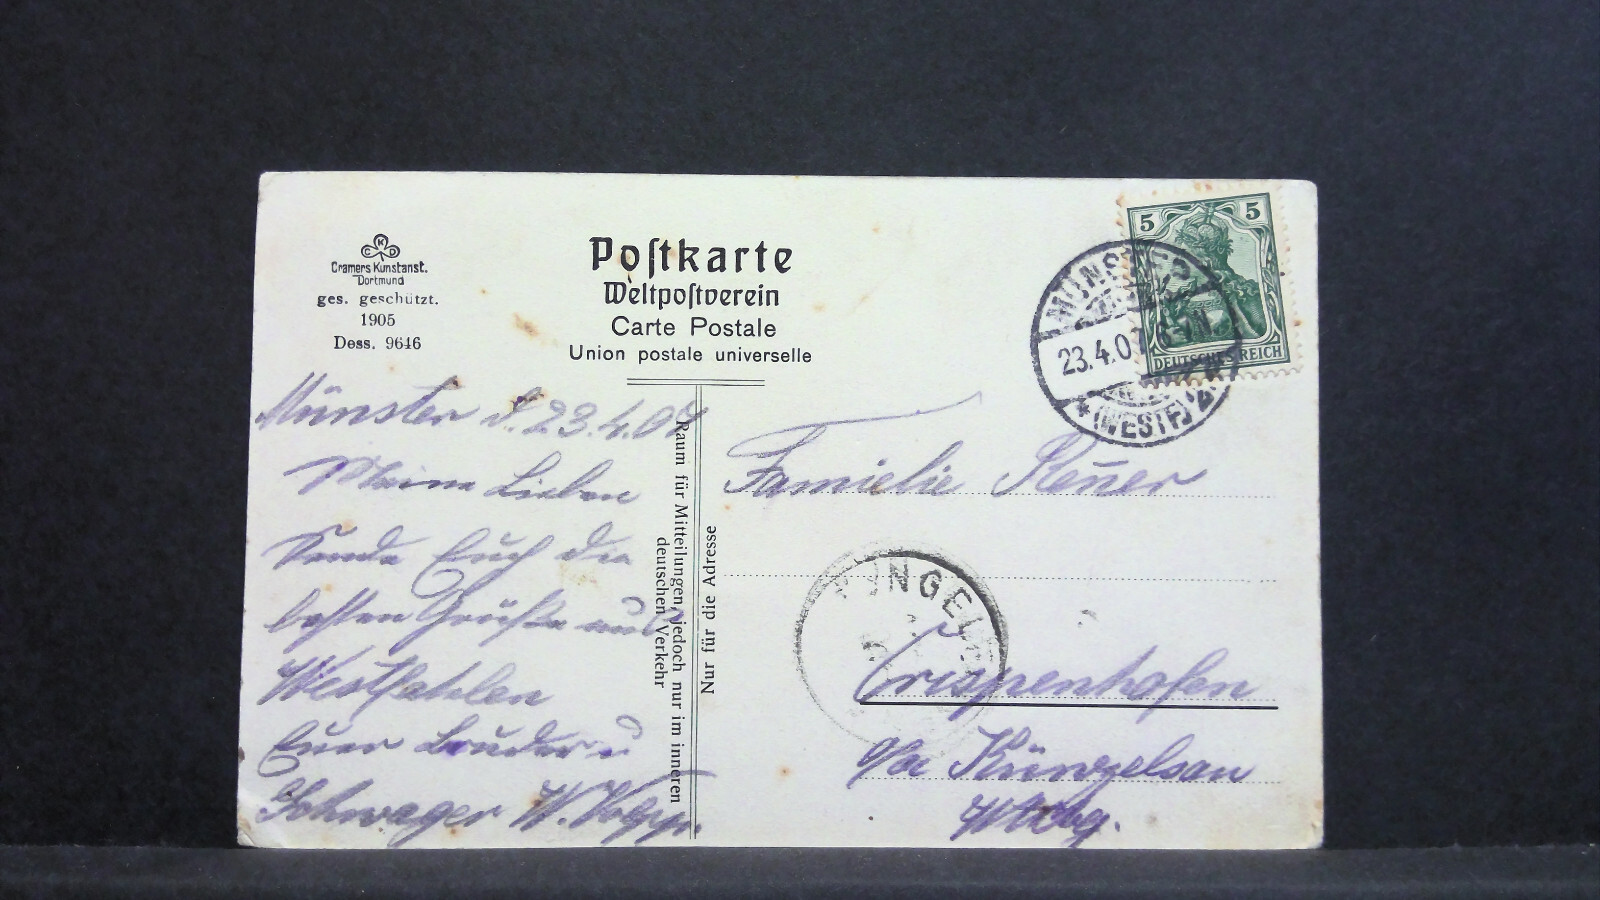 CKD
Cramers Kunstanst.
Dortmund
ges. geschützt.
1905
Dess. 9646
Poſtkarte
Weltpoſtverein
Carte Postale
Union postale universelle
5 5
DEUTSCHES REICH
MÜNSTER
23.4.0
(WESTF.) 2
Münster d. 23.4.07
Meine Lieben
Sende Euch die
besten Grüße aus
Westfahlen
Euer Bruder u
Schwager W.
Raum für Mitteilungen, jedoch nur im inneren
deutschen Verkehr
Nur für die Adresse
Familie
Crispenhofen
Künzelsau
Wtbg.